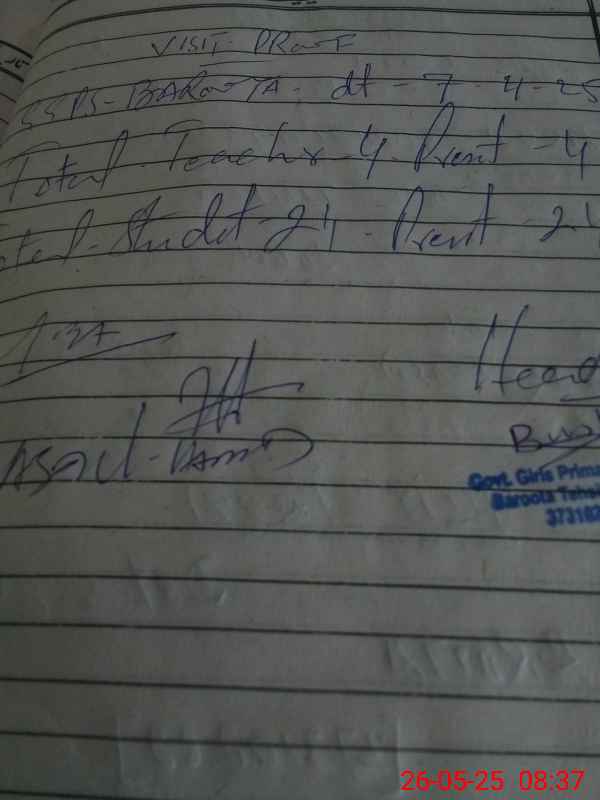 VISIT PROOF
SSPS-BAROOTA. dt - 7-4-25
Total Teacher-4. Present - 4
Total Student-24. Present - 24
Head
Govt. Girls Prima
Baroota Tehsi
37318
26-05-25 08:37